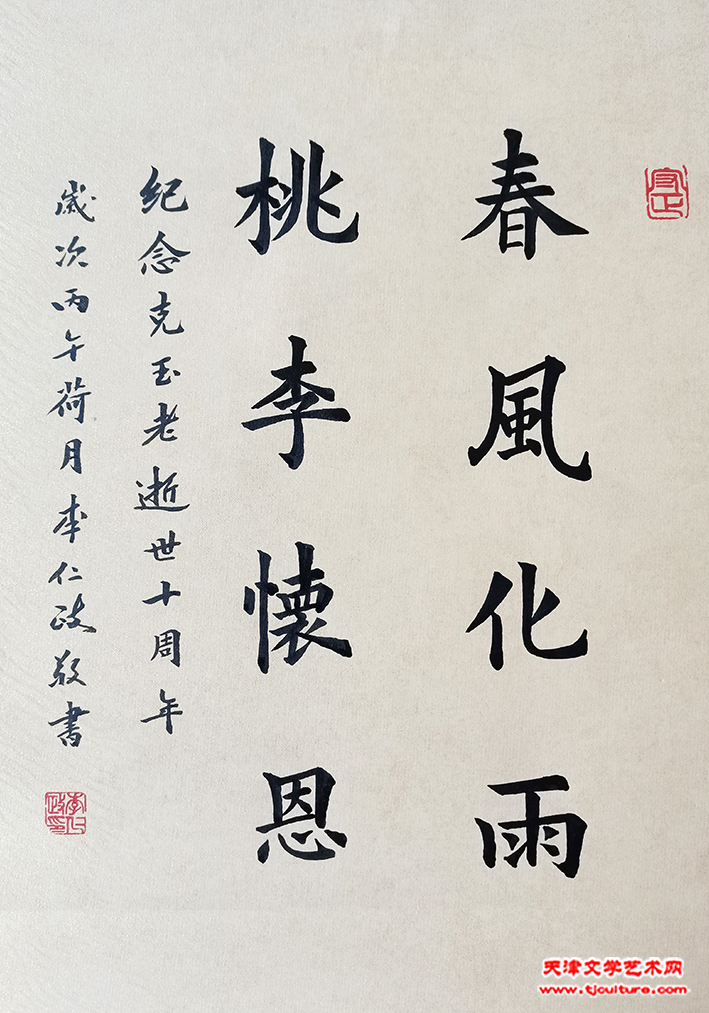 春風化雨
桃李懷恩
纪念克玉老逝世十周年
歲次丙午荷月李仁政敬書
守正
李仁政印
天津文学艺术网
www.tjculture.com